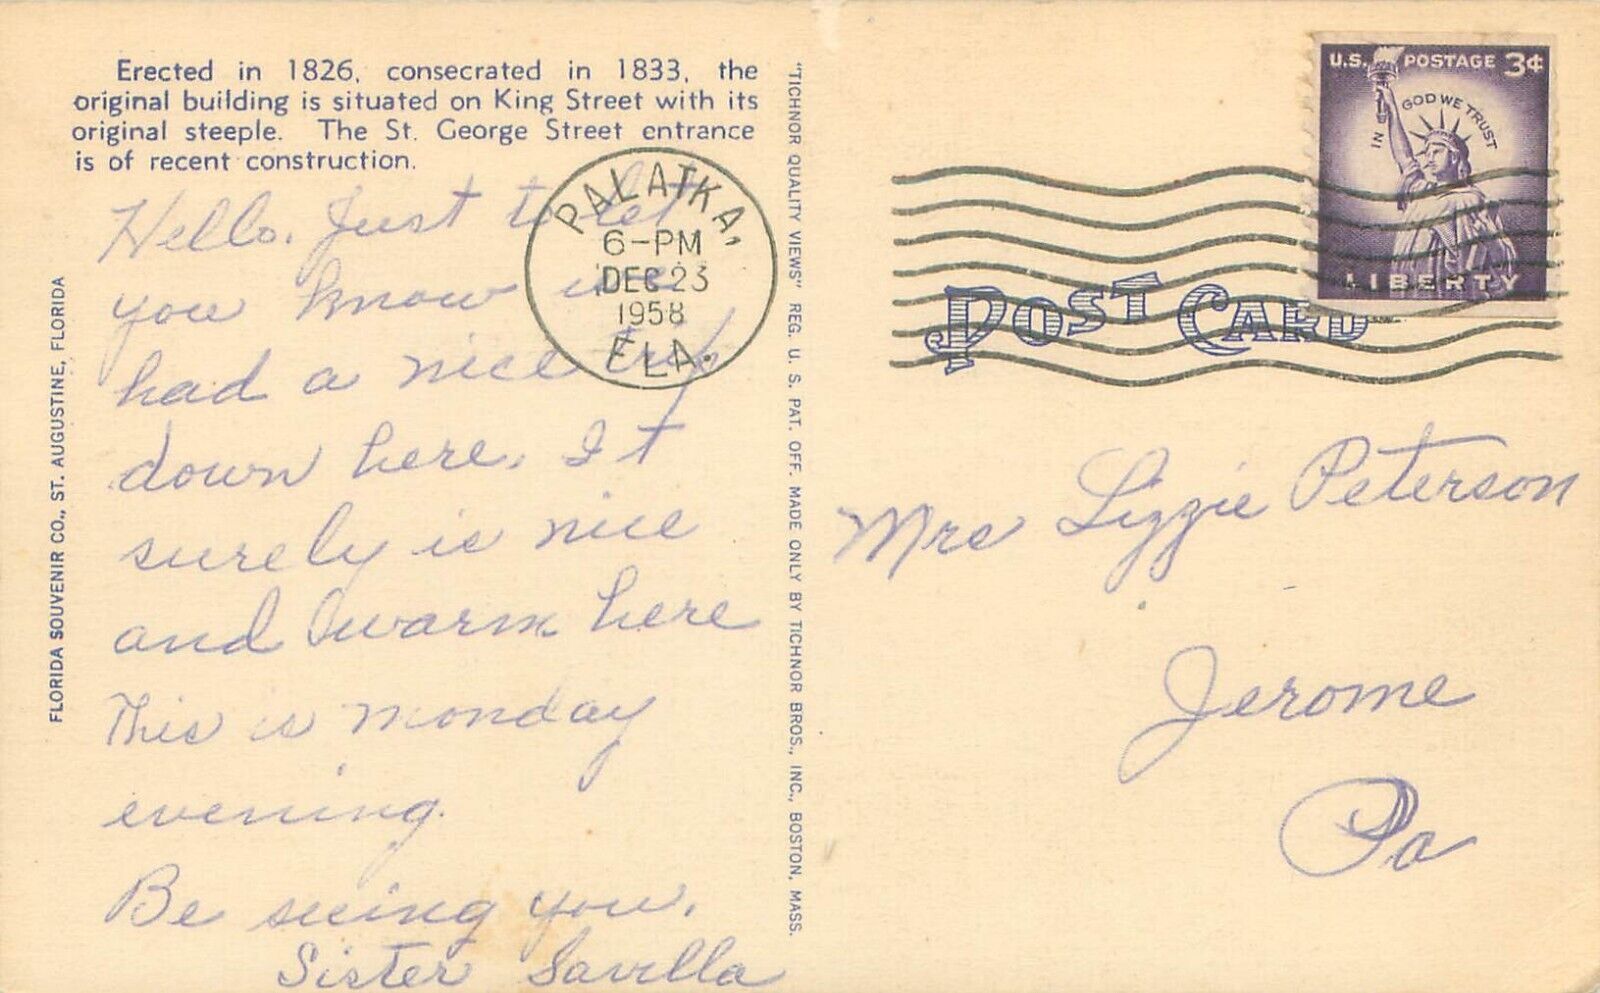 Erected in 1826, consecrated in 1833, the
original building is situated on King Street with its
original steeple. The St. George Street entrance
is of recent construction.
Hello. Just to let
you know we
had a nice trip
down here. It
surely is nice
and warm here
This is monday
evening.
Be seeing you.
Sister Savilla
FLORIDA SOUVENIR CO., ST. AUGUSTINE, FLORIDA
"TICHNOR QUALITY VIEWS" REG. U. S. PAT. OFF. MADE ONLY BY TICHNOR BROS., INC., BOSTON, MASS.
PALATKA,
6-PM
DEC 23
1958
FLA.
U.S. POSTAGE 3¢
IN GOD WE TRUST
LIBERTY
POST CARD
Mrs Lizzie Peterson
Jerome
Pa